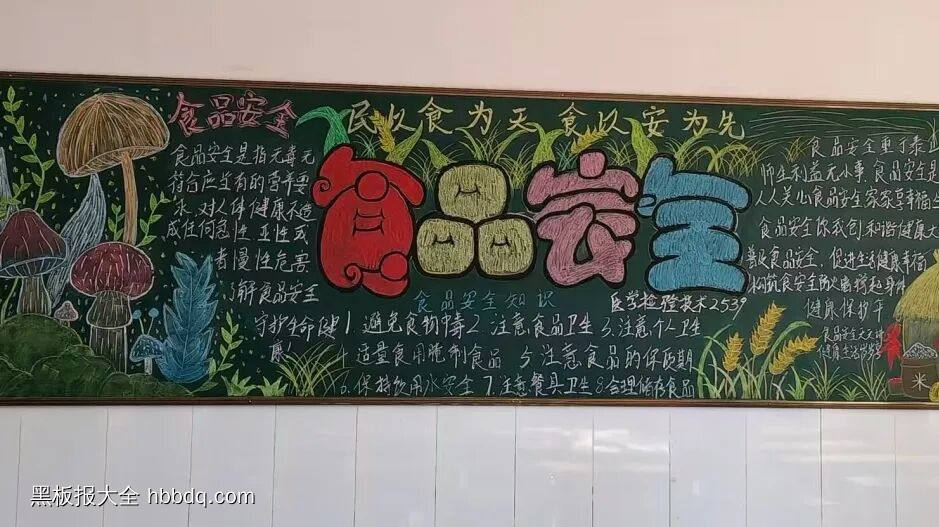 食品安全
食品安全是指无毒无
符合应当有的营养要
求，对人体健康不造
成任何急性亚性或
者慢性危害，
了解食品安全
守护生命健
康！
民以食为天 食以安为先
食品安全
食品安全知识
医学检验技术2539
1.避免食物中毒2.注意食品卫生3.注意个人卫生
4.适量食用腌制食品 5.注意食品的保质期
6.保持饮用水安全 7.注意餐具卫生8.合理储存食品
食品安全重于泰山
师生利益无小事 食品安全是
人人关心食品安全家家享幸福生
食品安全你我创 和谐健康大
普及食品安全，促进生活健康幸福
构筑食安全防火墙
健康保护
食品安全
健康生活
米
黑板报大全 hbbdq.com